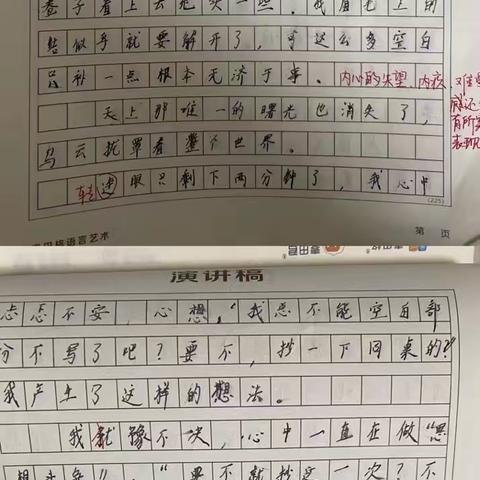 卷子看上去把头一些。我眉毛上的
结似乎就要解开了，可这么多空白
只补一点根本无济于事。内心的失望、内疚、难
天上那唯一的曙光也消失了，
乌云笼罩着整个世界。
转眼只剩下两分钟了，我心中
(225)
语言艺术 第 页
演讲稿
忐忑不安，心想，“我总不能空白部
分不写了吧？要不，抄一下同桌的？”
我产生了这样的想法。
我犹豫不决，心中一直在做“思
想斗争”，“要不就抄这一次？不